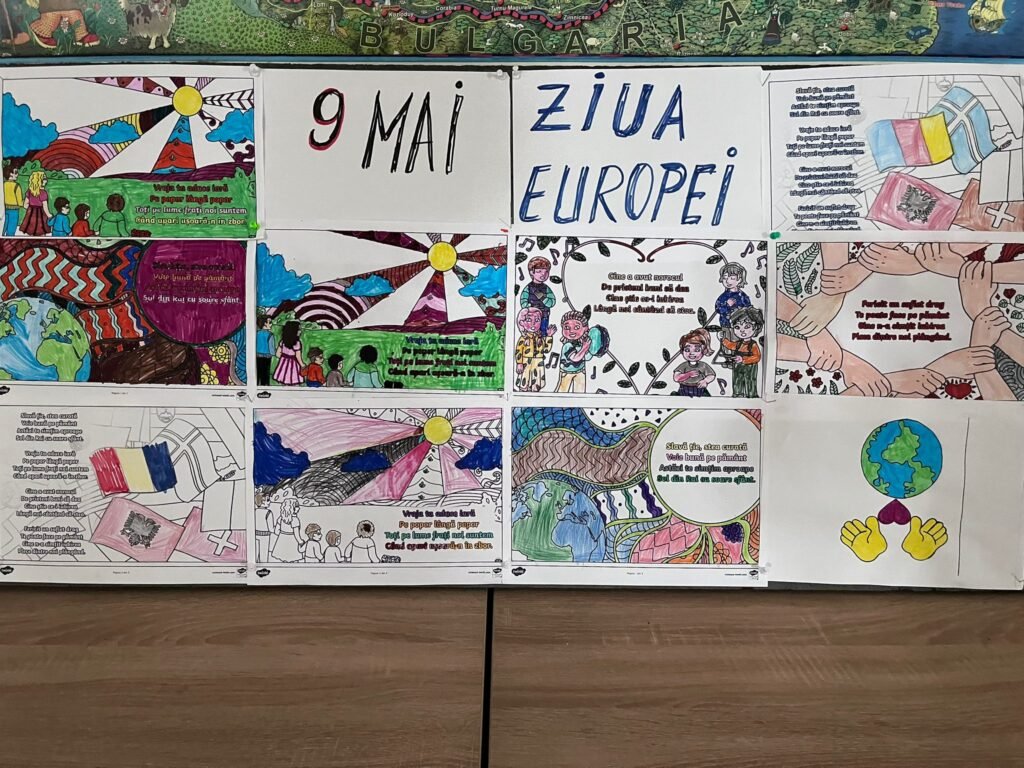 Corabia
Turnu Magurele
Zimnicea
BULGARIA
Vraja ta aduce iară
Pe popor lângă popor
Toți pe lume frați noi suntem
9 MAI
ZIUA
EUROPEI
Slavă ție, stea curată
Voie bună pe pământ
Astăzi te simțim aproape
Sol din Rai cu soare sfânt.
Vraja ta aduce iară
Pe popor lângă popor
Toți pe lume frați noi suntem
Când apari ușoară-n zbor.
Cine a avut norocul
De prieteni buni să dea
Cine știe ce-i iubirea
Lângă noi cântând să stea.
Fericit un suflet drag
Te poate face pe pământ
Cine n-a simțit iubirea
Voie bună pe pământ
Sol din Rai cu soare sfânt.
Vraja ta aduce iară
Pe popor lângă popor
Toți pe lume frați noi suntem
Când apari ușoară-n zbor.
Cine a avut norocul
De prieteni buni să dea
Cine știe ce-i iubirea
Lângă noi cântând să stea.
Fericit un suflet drag
Te poate face pe pământ
Cine n-a simțit iubirea
Plece dintre noi plângând.
Slavă ție, stea curată
Voie bună pe pământ
Astăzi te simțim aproape
Sol din Rai cu soare sfânt.
Vraja ta aduce iară
Pe popor lângă popor
Toți pe lume frați noi suntem
Când apari ușoară-n zbor.
Cine a avut norocul
De prieteni buni să dea
Cine știe ce-i iubirea
Lângă noi cântând să stea.
Fericit un suflet drag
Te poate face pe pământ
Cine n-a simțit iubirea
Plece dintre noi plângând.
Vraja ta aduce iară
Pe popor lângă popor
Toți pe lume frați noi suntem
Când apari ușoară-n zbor.
Slavă ție, stea curată
Voie bună pe pământ
Astăzi te simțim aproape
Sol din Rai cu soare sfânt.